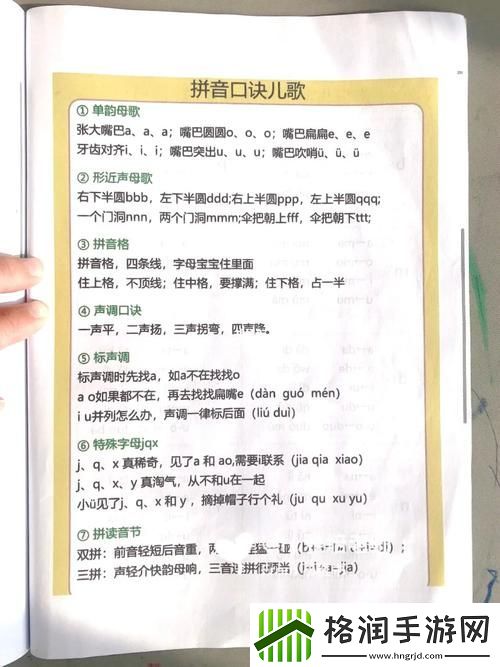 拼音口诀儿歌
① 单韵母歌
张大嘴巴a、a、a；嘴巴圆圆o、o、o；嘴巴扁扁e、e、e
牙齿对齐i、i、i；嘴巴突出u、u、u；嘴巴吹哨ü、ü、ü
② 形近声母歌
右下半圆bbb，左下半圆ddd;右上半圆ppp，左上半圆qqq;
一个门洞nnn，两个门洞mmm;伞把朝上fff，伞把朝下ttt;
③ 拼音格
拼音格，四条线，字母宝宝住里面
住上格，不顶线；住中格，要撑满；住下格，占一半
④ 声调口诀
一声平，二声扬，三声拐弯，四声降。
⑤ 标声调
标声调时先找a，如a不在找找o
a o如果都不在，再去找找扁嘴e（dàn guó mén）
i u并列怎么办，声调一律标后面（liú duì）
⑥ 特殊字母jqx
j、q、x 真稀奇，见了a 和 ao,需要i联系（jia qia xiao）
j、q、x、y 真淘气，从不和u在一起
小ü见了j、q、x 和 y ，摘掉帽子行个礼（ju qu xu yu）
⑦ 拼读音节
双拼：前音轻短后音重，两
三拼：声轻介快韵母响，三音
格润手游网
www.hngrjd.com